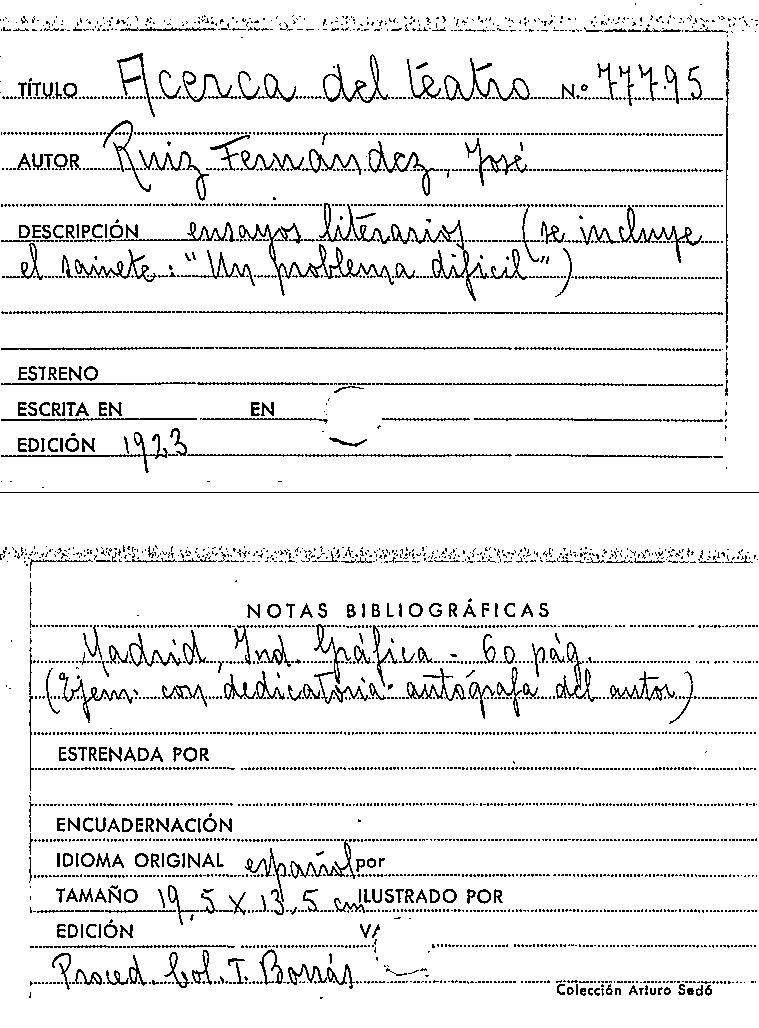 TÍTULO Acerca del teatro N.º 77795
AUTOR Ruiz Fernández, José
DESCRIPCIÓN ensayos literarios (se incluye
el sainete: "Un problema dificil")
ESTRENO
ESCRITA EN EN
EDICIÓN 1923
NOTAS BIBLIOGRÁFICAS
Madrid, Ind. Gráfica - 60 pág.
(Ejem. con dedicatoria autógrafa del autor)
ESTRENADA POR
ENCUADERNACIÓN
IDIOMA ORIGINAL español por
TAMAÑO 19,5 x 13,5 cm ILUSTRADO POR
EDICIÓN
Proced. Col. T. Borrás
Colección Arturo Sedó